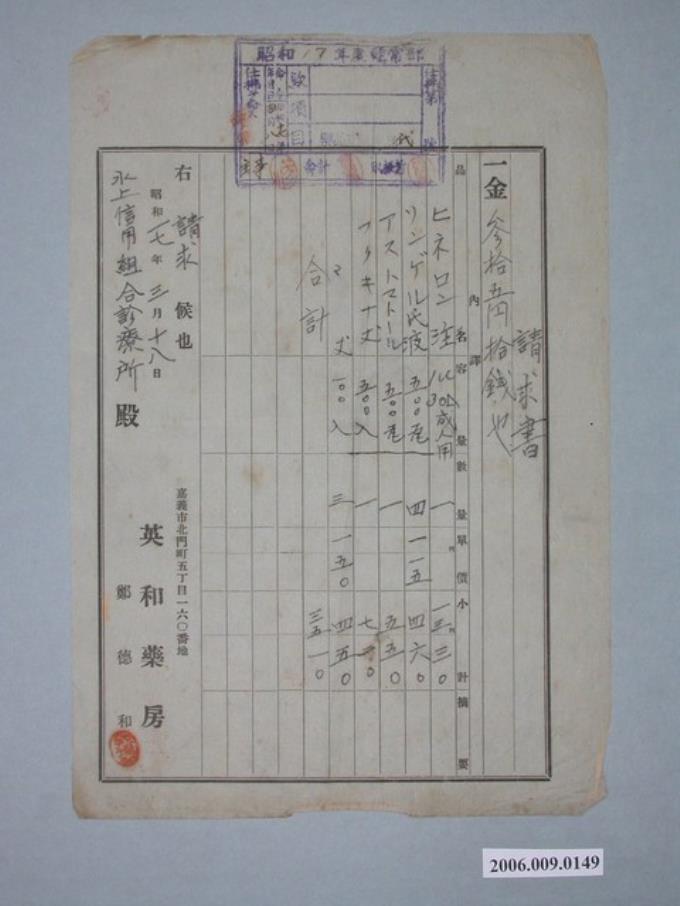 昭和17年度経常部
款
項
目
主事
会計
請求書
一金参拾五円拾銭也
内訳
品名 容量 数量 単價 小計 摘要
ヒネロン注 成人用 一 一三三〇
リンゲル氏液 五〇〇瓦 四 一一五 四六〇
アストマトール 五〇〇瓦 一 五五〇
フクキナ丸 五〇〇入 一 七二〇
〃 丸 一〇〇入 三 一五〇 四五〇
合計 三五一〇
右請求候也
昭和一七年三月十八日
水上信用組合診療所殿
嘉義市北門町五丁目一六〇番地
英和藥房
鄭德和
2006.009.0149